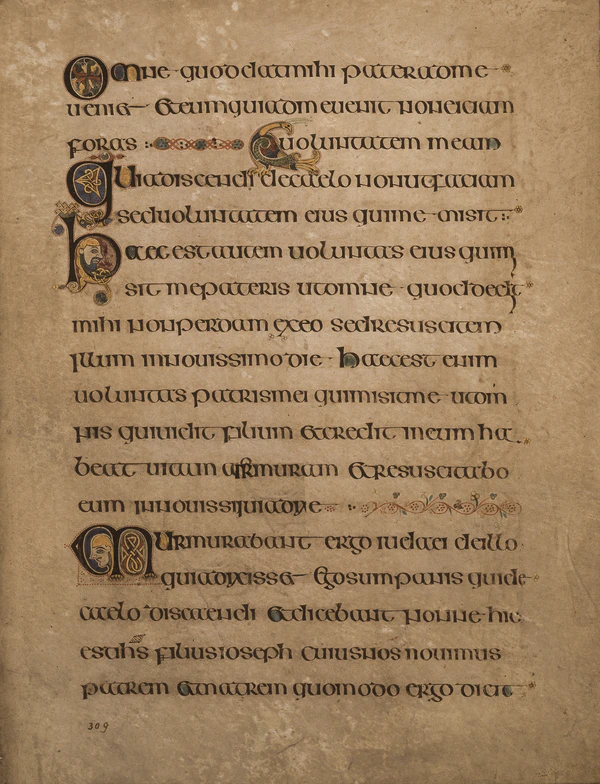 Omne quod dat mihi pater ad me
ueniet et eum qui ad me uenit non eiciam
foras uoluntatem meam
Quia discendi de caelo non ut faciam
sed uoluntatem eius qui me misit
haec est autem uoluntas eius qui m
sit me pateris ut omne quod dedit
mihi non perdam ex eo sed resuscitem
illum in nouissimo die haec est enim
uoluntas patris mei qui misit me ut om
nis qui uidit filium et credit in eum ha
beat uitam et resuscitabo
eum
Murmurabant ergo iudaei de illo
quia dixisset ego sum panis qui de
caelo discendi et dicebant nonne hic
est ihs filius ioseph cuius nos nouimus
patrem et matrem quomodo ergo dicit
309